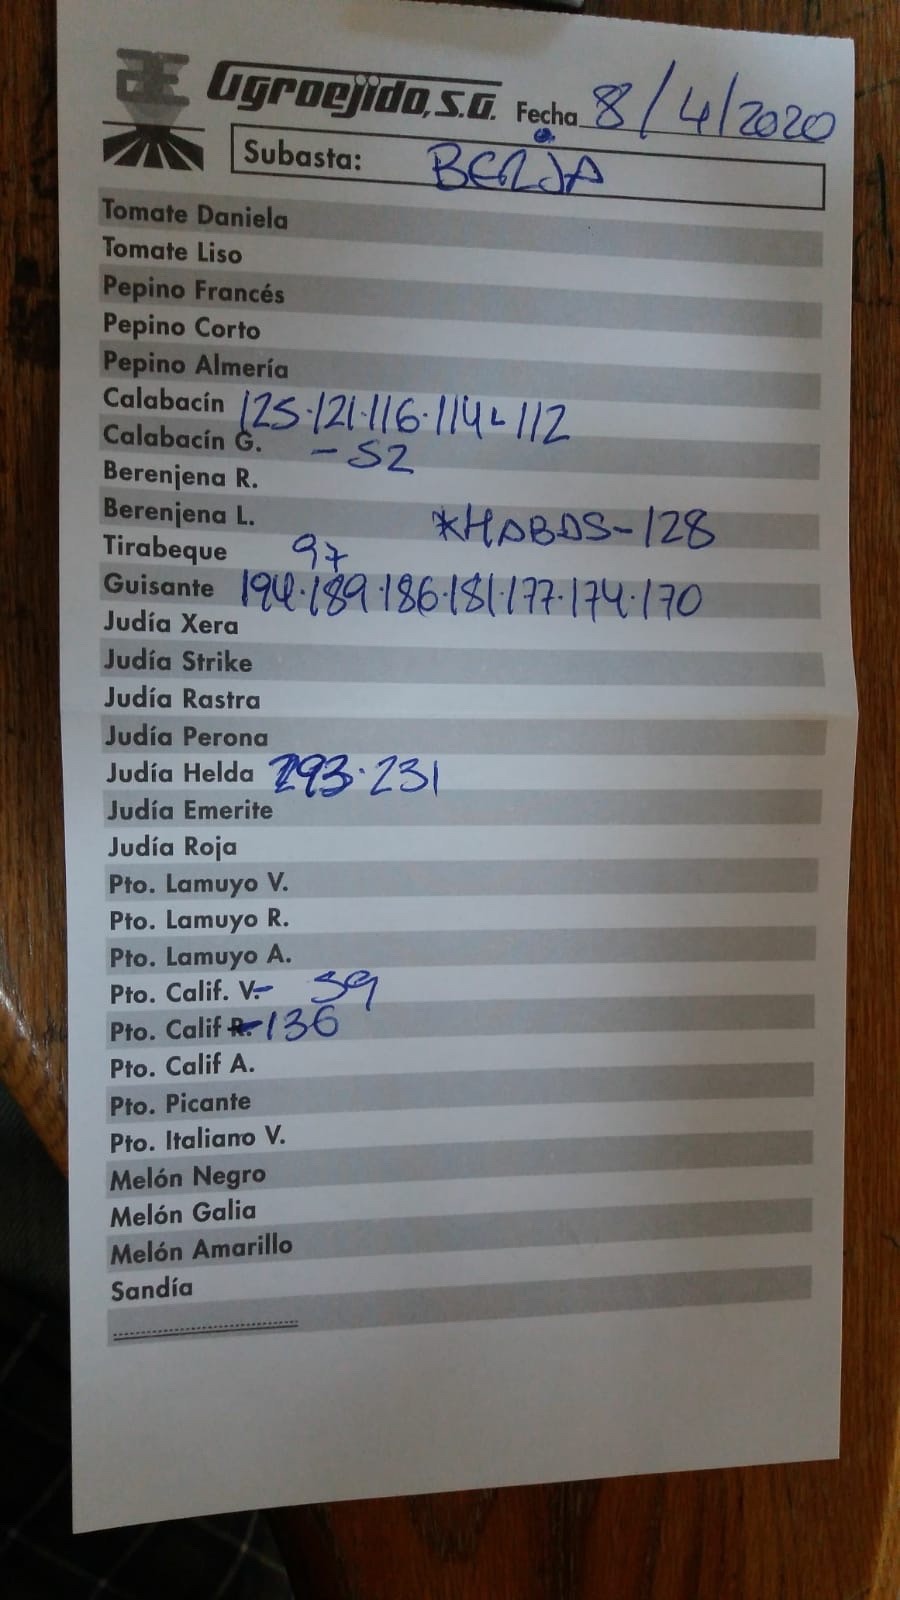 Agroejido, S.A. Fecha 8/4/2020
Subasta: BERJA
Tomate Daniela
Tomate Liso
Pepino Francés
Pepino Corto
Pepino Almería
Calabacín 125·121·116·114-112
Calabacín G. - 52
Berenjena R.
Berenjena L. *HABAS-128
Tirabeque 97
Guisante 194·189·186·181·177·174·170
Judía Xera
Judía Strike
Judía Rastra
Judía Perona
Judía Helda 293·231
Judía Emerite
Judía Roja
Pto. Lamuyo V.
Pto. Lamuyo R.
Pto. Lamuyo A.
Pto. Calif. V.- 59
Pto. Calif R.-136
Pto. Calif A.
Pto. Picante
Pto. Italiano V.
Melón Negro
Melón Galia
Melón Amarillo
Sandía